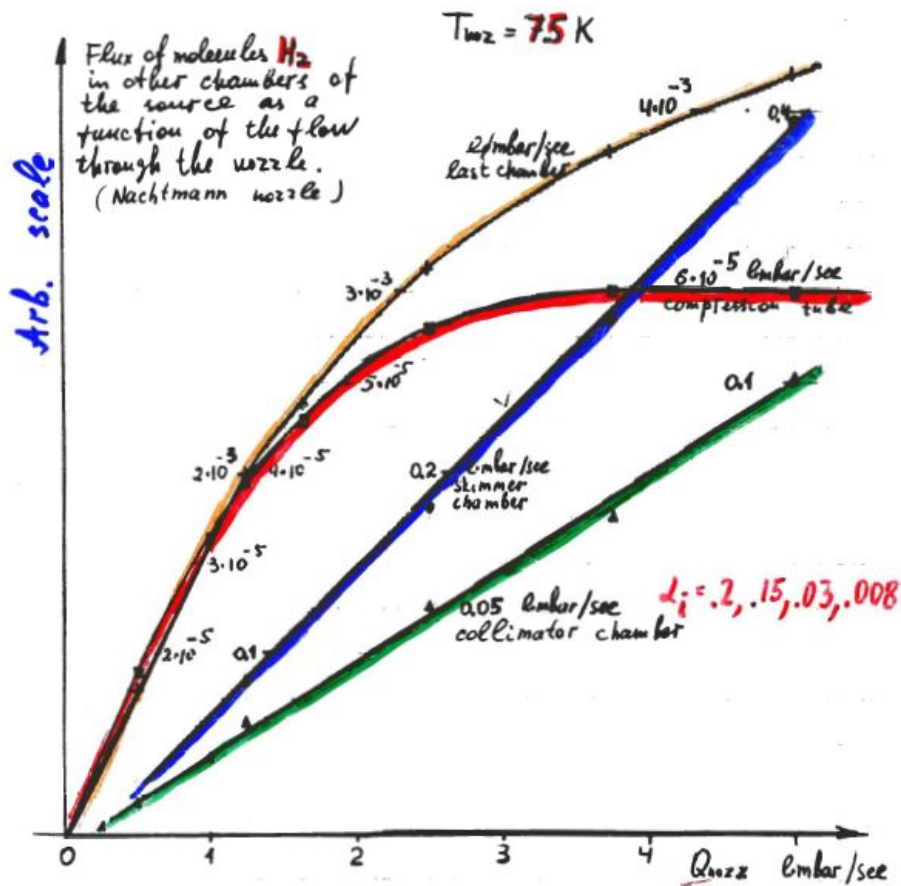 T noz = 75 K
Flux of molecules H2
in other chambers of
the source as a
function of the flow
through the nozzle.
(Nachtmann nozzle)
Arb. scale
4·10⁻³
0,4
lmbar/sec
last chamber
3·10⁻³
6·10⁻⁵ lmbar/sec
compression tube
5·10⁻⁵
0.1
2·10⁻³
4·10⁻⁵
0,2 lmbar/sec
skimmer
chamber
3·10⁻⁵
0,05 lmbar/sec
collimator chamber
αi = .2, .15, .03, .008
2·10⁻⁵
0,1
0 1 2 3 4
Q nozz lmbar/sec